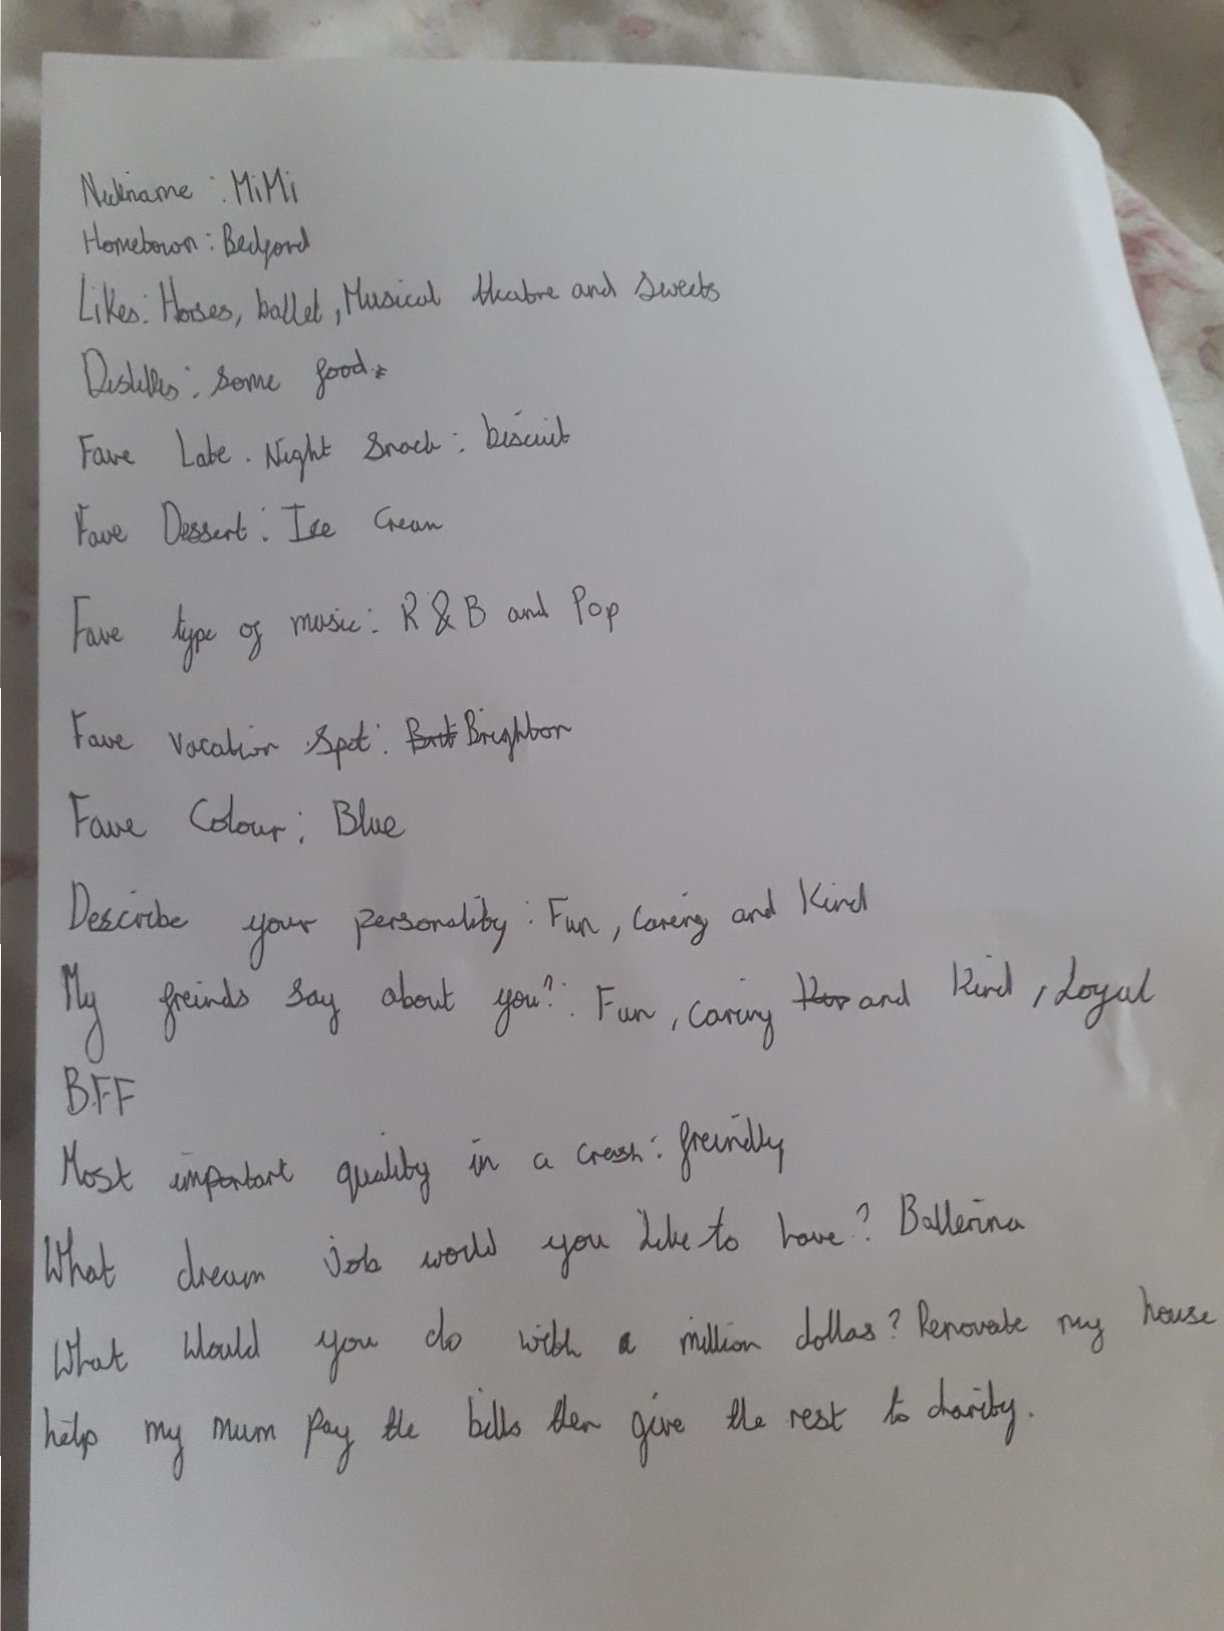 Nickname : MiMi
Hometown : Bedford
Likes: Horses, ballet, Musical theatre and sweets
Dislikes: Some food.
Fave Late. Night Snack : biscuit
Fave Dessert : Ice Cream
Fave type of music : R & B and Pop
Fave vacation Spot : Brit Brighton
Fave Colour : Blue
Describe your personality : Fun, Caring and Kind
My freinds say about you? : Fun, Caring and Kind, Loyal
B.F.F
Most important quality in a crush : freindly
What dream job would you like to have? Ballerina
What Would you do with a million dollas? Renovate my house
help my mum pay the bills then give the rest to charity.